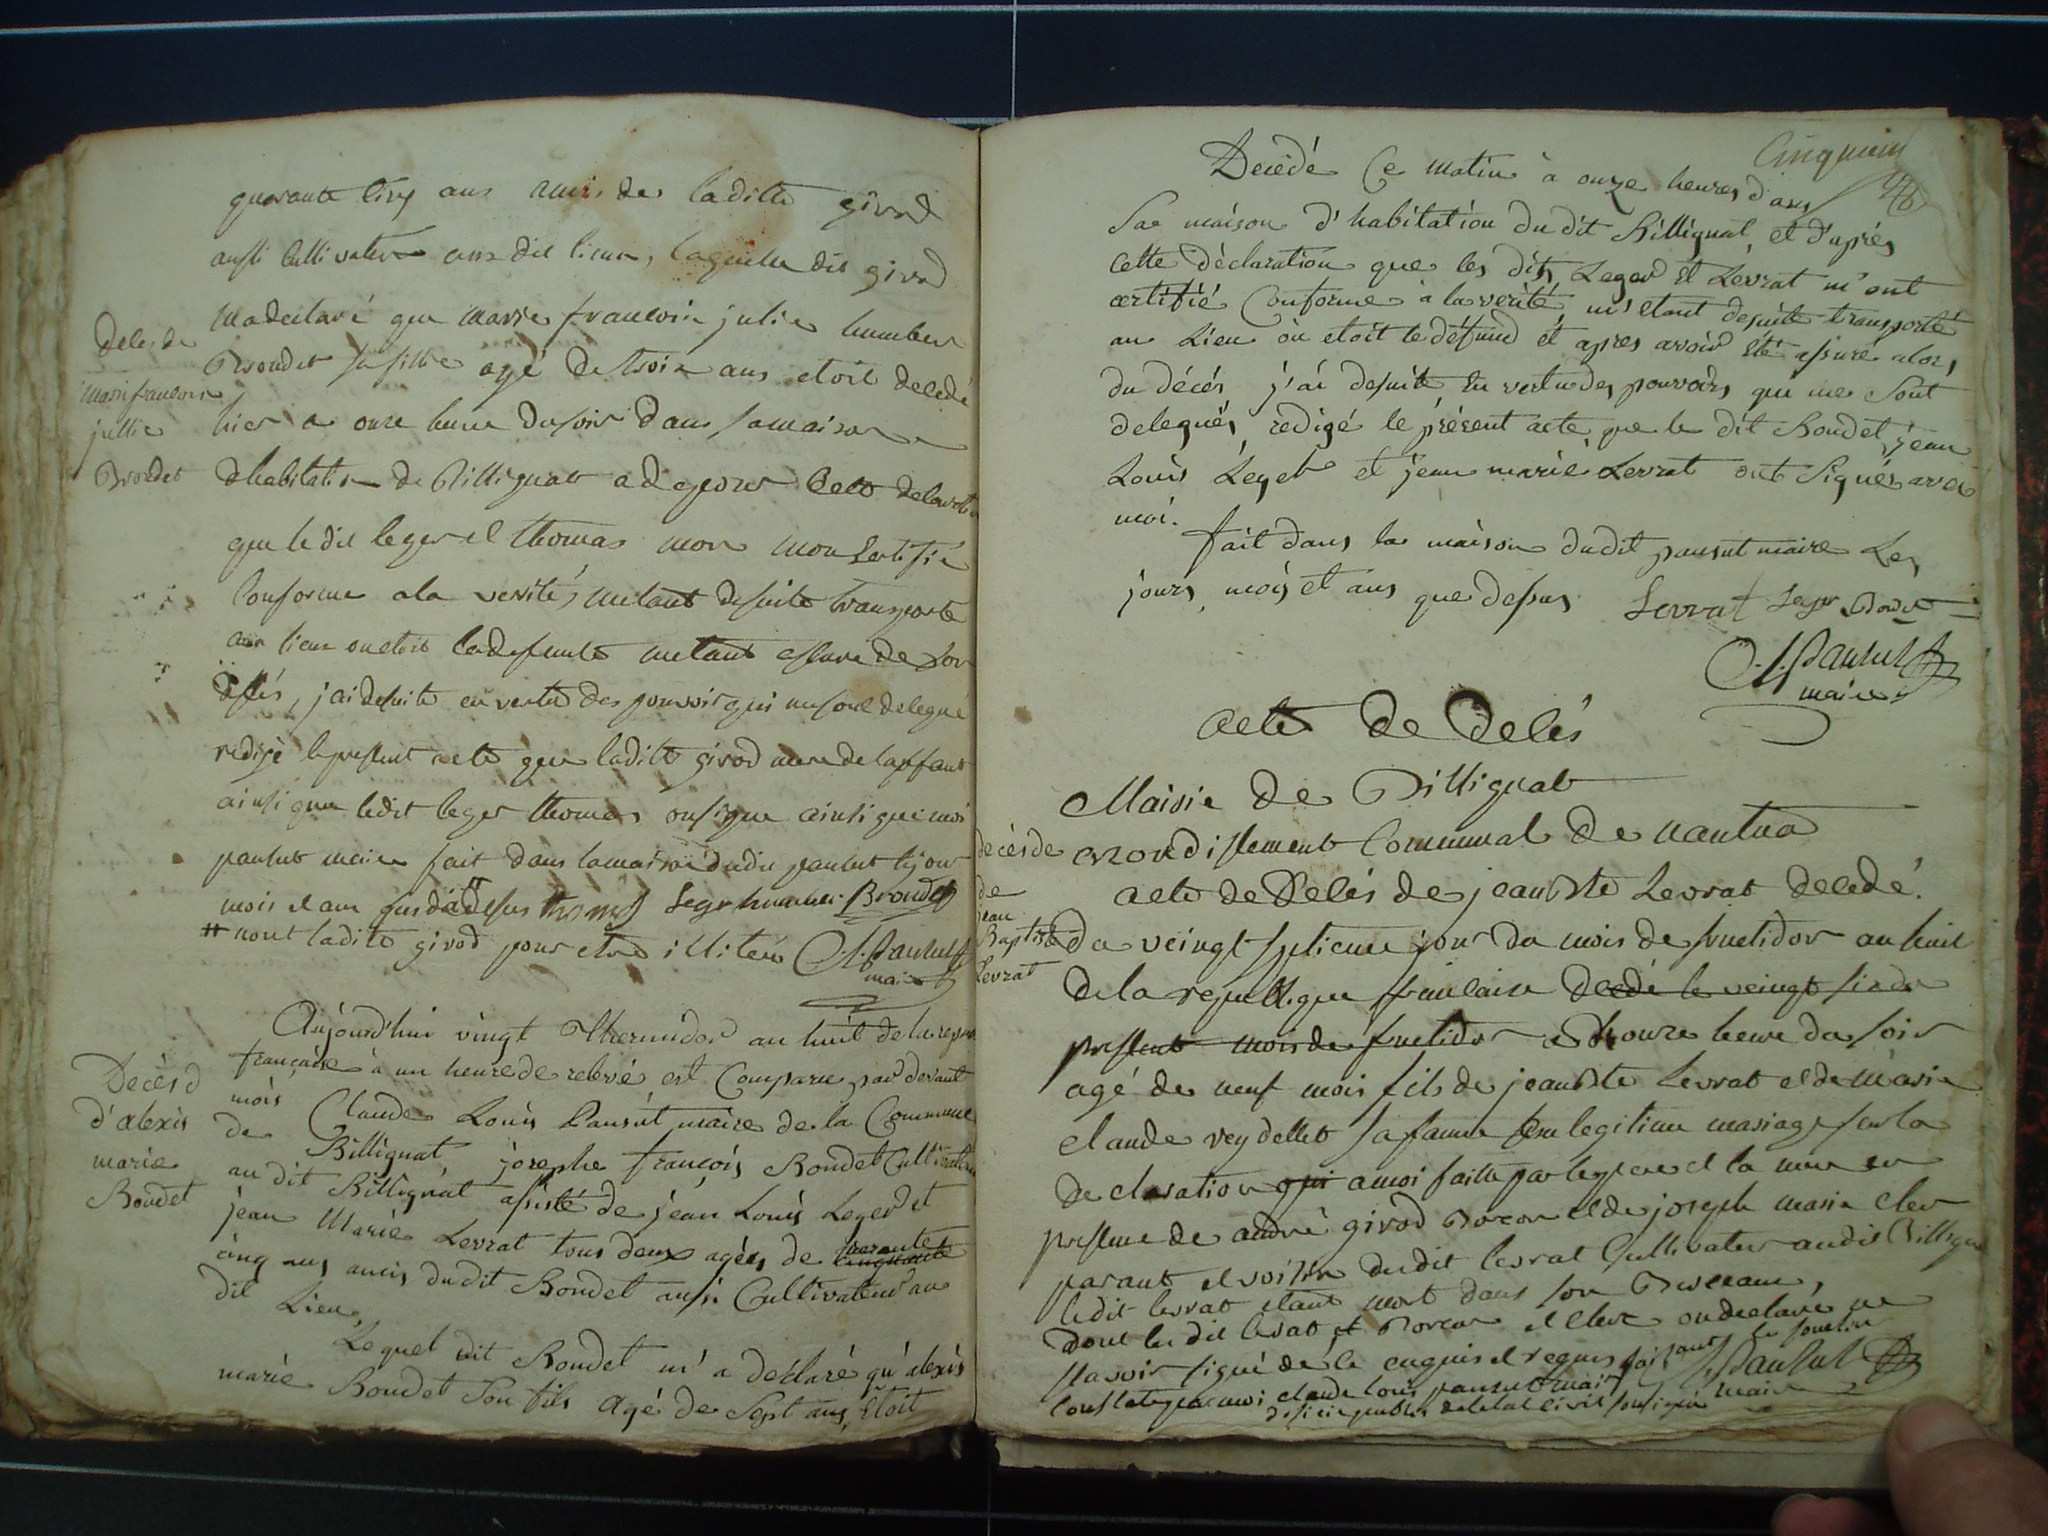 quarante cinq ans amis de laditte girod
aussi cultivateur au dit lieu, laquelle dit girod
Madeclaré que marie francoise julie humbert
Brondet sa fille agé de trois ans etoit decedé
hier a onze heure du soir dans sa maison
dhabitation de Billignat
que le dit leger et thomas mon certifié
Conforme ala verité, metant desuite transporté
au lieu ou etoit ladefunte metant assuré de son
désés, j'ai desuite en vertu des pouvoir qui me sont delegué
redigé le present acte que laditte girod mere de lanfant
ainsi que ledit leger thomas on signe ainsi que moi
pansut maire fait dans la maison dudit pansut le jour
mois et an que dessus thomas Leger humber Brondet
# nont ladite girod pour etre illiteré Pansut
maire
Deces de
marie francoise
jullie
Brondet
Aujourd'hui vingt Thermidor an huit de la repu
française à un heure de relevé est Comparu par devant
mois Claude Louis Pansut maire de la Commune
de Billignat josephe françois Bondet Cultivateur
au dit Billignat assisté de jean Louis Leger et
jean Marie Levrat tous deux agés de quarante cinquante
cinq ans amis du dit Bondet aussi Cultivateur au
dit Lieu,
Lequel dit Bondet m'a déclaré qu'alexis
marie Bondet Son fils Agé de Sept ans, Etoit
Decès d
d'alexis
marie
Bondet
Cinquieme
Decédé Ce matin à onze heures dans
Sa maison d'habitation du dit Billignat, et d'après
cette déclaration que les dits Leger et Levrat m'ont
certifié Conforme à la verité, m'étant desuite transporté
au Lieu où etoit le défund et apres avoir été assuré alors
du décès j'ai desuite, en vertu des pouvoirs qui me Sont
delegués, redigé le présent acte, que le dit Bondet, jean
Louis Leger et jean marie Levrat ont Signés avec
moi.
fait dans la maison du dit pansut maire Les
jours, mois et ans que dessus Levrat Leger Bondet
Pansut
maire
acte de Delés
Mairie de Billignat
arondissement Communal de nantua
acte de Delés de jean Bte Levrat decedé.
du veingt septieme jour du mois de fructidor an huit
de la republique francaise decedé le veingt six du
present mois de fructidor a onze heure du soir
agé de neuf mois fils de jean Bte Levrat et de marie
claude veydellet sa famme en legitime mariage sur la
declaration qui a moi faitte par le pere et la mere en
presence de andré girod et de joseph marie clerc
parant et voisin dudit levrat Cultivateur audit Billignat
ledit levrat etant mort dans son Berceau,
dont les dit levrat et et clerc on declaré ne
savoir signé de ce enquis et requis
Constaté par moi claude louis pansut maire Pansut
officier public de letat civil soussigné maire
decès de
de
jean
Baptiste
Levrat